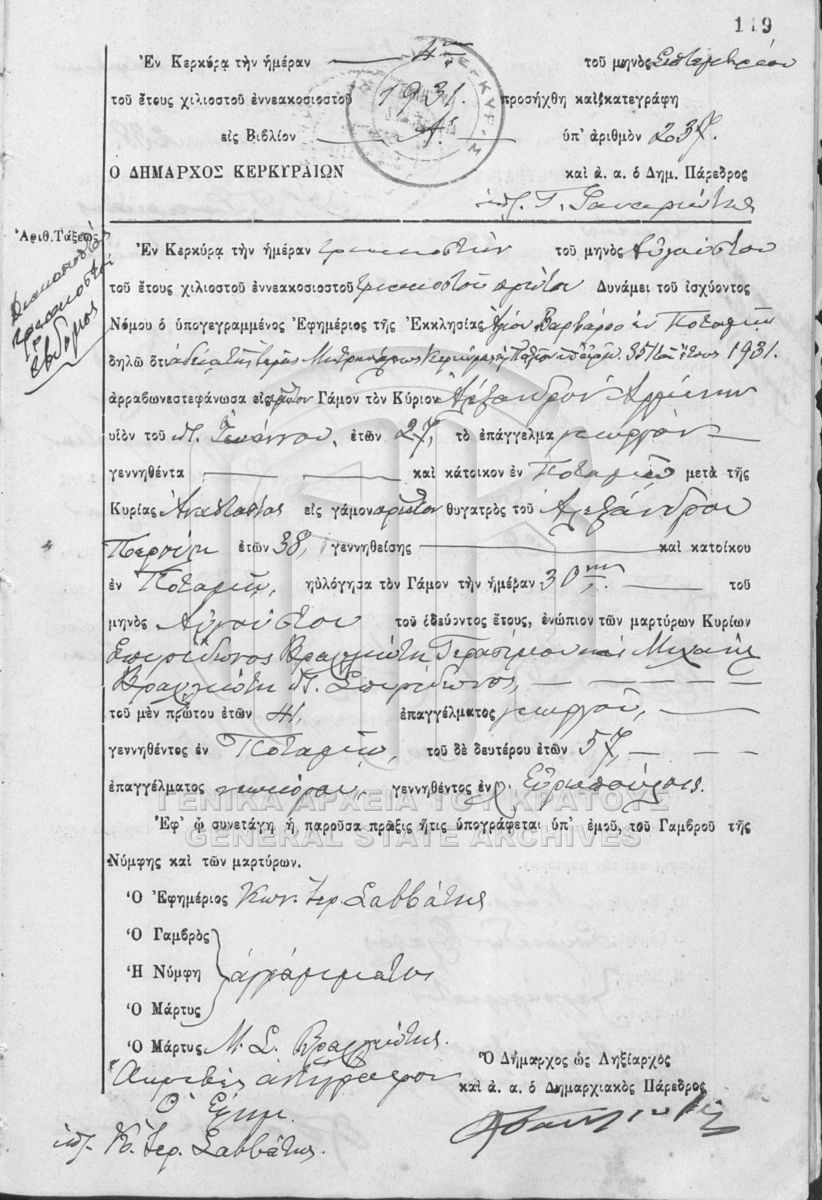 119
Ἐν Κερκύρᾳ τὴν ἡμέραν 4ην τοῦ μηνὸς Σεπτεμβρίου
τοῦ ἔτους χιλιοστοῦ ἐννεακοσιοστοῦ 1931. προσήχθη καὶ κατεγράφη
εἰς Βιβλίον Α. ὑπ' ἀριθμὸν 237.
Ο ΔΗΜΑΡΧΟΣ ΚΕΡΚΥΡΑΙΩΝ καὶ ἀ. α. ὁ Δημ. Πάρεδρος
ὑπ. Γ.
Ἀριθ. Τάξεως
Διακοσιοστὸς
τριακοστὸς
ἕβδομος
Ἐν Κερκύρᾳ τὴν ἡμέραν τριακοστὴν τοῦ μηνὸς Αὐγούστου
τοῦ ἔτους χιλιοστοῦ ἐννεακοσιοστοῦ τριακοστοῦ πρώτου Δυνάμει τοῦ ἰσχύοντος
Νόμου ὁ ὑπογεγραμμένος Ἐφημέριος τῆς Ἐκκλησίας Ἁγίου Βαρβάρου ἐν Ποταμῷ
δηλῶ ὅτι ἀδείᾳ τῆς Ἱερᾶς Μητροπόλεως Κερκύρας καὶ Παξῶν ὑπ' ἀριθ. 351 τοῦ ἔτους 1931.
ἀρραβωνεστεφάνωσα εἰς πρῶτον Γάμον τὸν Κύριον Ἀλέξανδρον
υἱὸν τοῦ π. Ἰωάννου, ἐτῶν 27, τὸ ἐπάγγελμα γεωργὸν
γεννηθέντα καὶ κάτοικον ἐν Ποταμῷ μετὰ τῆς
Κυρίας Ἀναστασίας εἰς γάμον πρῶτον θυγατρὸς τοῦ Ἀλεξάνδρου
ἐτῶν 38, γεννηθείσης καὶ κατοίκου
ἐν Ποταμῷ, ηὐλόγησα τὸν Γάμον τὴν ἡμέραν 30ην τοῦ
μηνὸς Αὐγούστου τοῦ ὁδεύοντος ἔτους, ἐνώπιον τῶν μαρτύρων Κυρίων
Σπυρίδωνος Βραχλιώτη Γερασίμου καὶ Μιχαὴλ
Βραχλιώτη π. Σπυρίδωνος,
τοῦ μὲν πρώτου ἐτῶν 41, ἐπαγγέλματος γεωργοῦ,
γεννηθέντος ἐν Ποταμῷ, τοῦ δὲ δευτέρου ἐτῶν 57,
ἐπαγγέλματος γεννηθέντος ἐν Εὐροπούλοις.
ΓΕΝΙΚΑ ΑΡΧΕΙΑ ΤΟΥ ΚΡΑΤΟΥΣ
Ἐφ' ᾧ συνετάγη ἡ παροῦσα πρᾶξις ἥτις ὑπογράφεται ὑπ' ἐμοῦ, τοῦ Γαμβροῦ τῆς
GENERAL STATE ARCHIVES
Νύμφης καὶ τῶν μαρτύρων.
Ὁ Ἐφημέριος Κων. Ἱερ. Σαββάτης
Ὁ Γαμβρὸς
Ἡ Νύμφη ἀγράμματοι
Ὁ Μάρτυς
Ὁ Μάρτυς Μ. Σ. Βραχλιώτης.
Ἀκριβὲς ἀντίγραφον
Ὁ Δήμαρχος ὡς Ληξίαρχος
καὶ ἀ. α. ὁ Δημαρχιακὸς Πάρεδρος
Ὁ Ἐφημ.
ὑπ. Κ. Ἱερ. Σαββάτης.